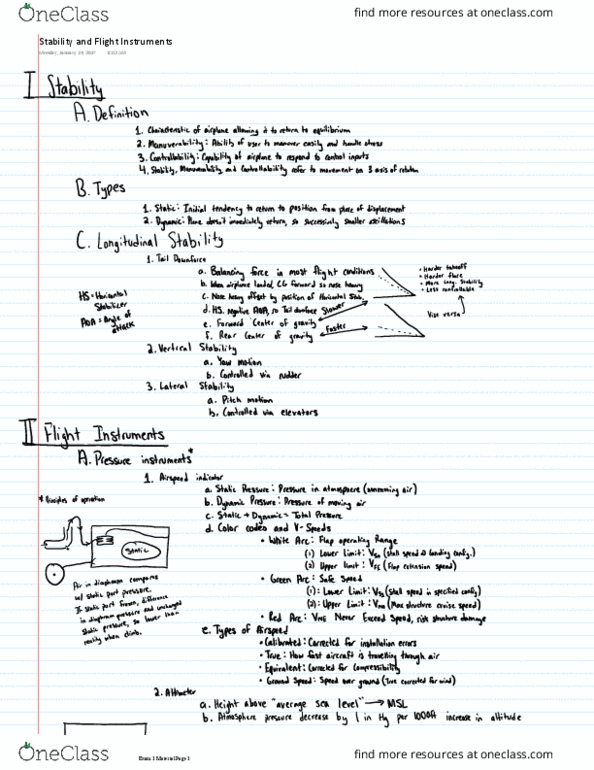 OneClass
find more resources at oneclass.com
Stability and Flight Instruments
I Stability
A. Definition
1. Characteristic of airplane allowing it to return to equilibrium
2. Manuverability: Ability of user to manuver easily and handle stress
3. Controllability: Capability of airplane to respond to control inputs
4. Stability, Manuverability and Controllability refer to movement on 3 axis of rotation
B. Types
1. Static: Initial tendency to return to position from place of displacement
2. Dynamic: Plane doesn't immediately return, so successively smaller oscillations
C. Longitudinal Stability
1. Tail Downforce
a. Balancing force in most flight conditions
b. When airplane loaded, CG forward so nose heavy
c. Nose heavy offset by position of Horizontal Stab.
d. HS. negative AOA, so Tail downforce
e. Forward Center of gravity
f. Rear Center of gravity
Slower
Faster
• Harder takeoff
• Harder flare
• More Long. Stability
• Less controllable
Vise versa
HS = Horizontal
Stabilizer
AOA = Angle of
attack
2. Vertical Stability
a. Yaw motion
b. Controlled via rudder
3. Lateral Stability
a. Pitch motion
b. Controlled via elevators
II Flight Instruments
A. Pressure instruments*
1. Airspeed indicator
a. Static Pressure: Pressure in atmosphere (unmoving air)
b. Dynamic Pressure: Pressure of moving air
c. Static + Dynamic = Total Pressure
d. Color codes and V-Speeds
• White Arc: Flap operating Range
(1) Lower Limit: Vso (stall speed @ landing config.)
(2) Upper limit: VFE (Flap extension speed)
• Green Arc: Safe Speed
(1): Lower Limit: Vs1 (stall speed in specified config)
(2): Upper Limit: Vno (Max structure cruise speed)
• Red Arc: VNE Never Exceed Speed, risk structure damage
* Principles of operation
Static
Air in diaphragm compares
w/ static port pressure.
If static port frozen, difference
in diaphragm pressure and unchanged
static pressure, so lower than
reality when climb.
e. Types of Airspeed
• Calibrated: Corrected for installation errors
• True: How fast aircraft is travelling through air
• Equivalent: Corrected for Compressibility
• Ground Speed: Speed over ground (True corrected for wind)
2. Altimeter
a. Height above "average sea level" → MSL
b. Atmosphere pressure decrease by 1 in Hg per 1000ft increase in altitude
OneClass
Exam 1 Material Page 1
find more resources at oneclass.com